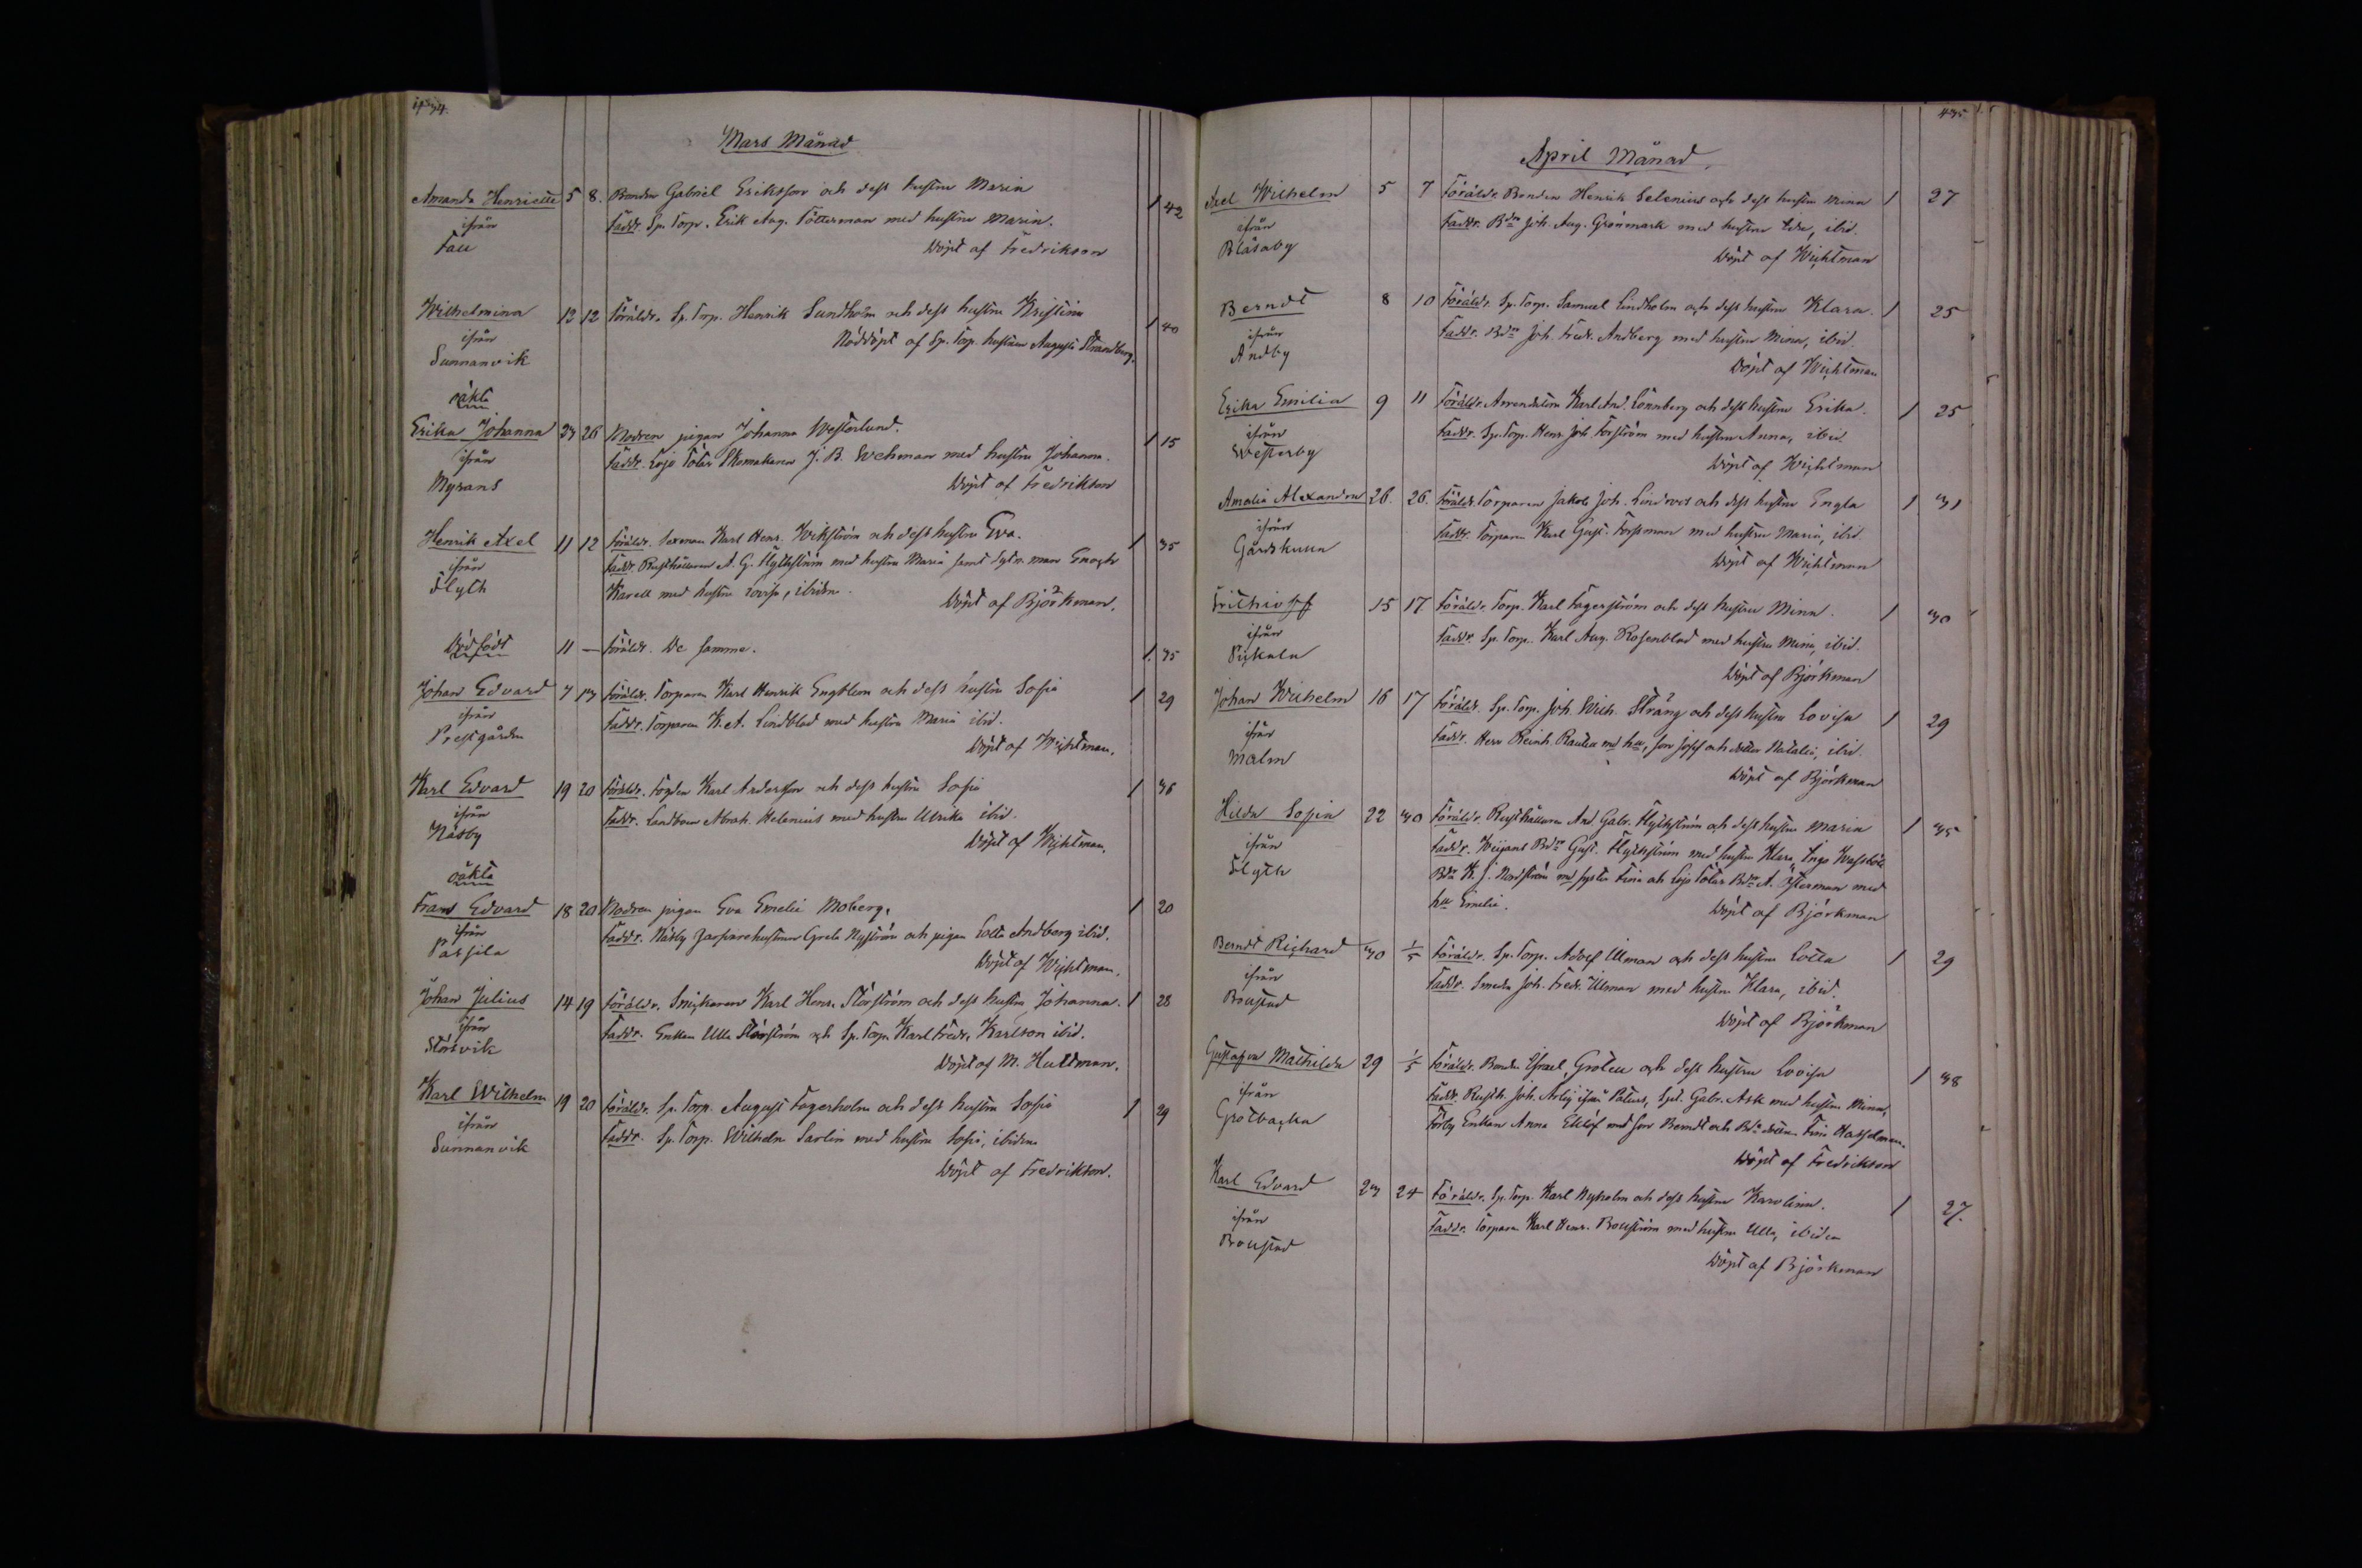 Mars Månad
Amanda Henriette 5 8. Bonden Gabriel Eriksson och dess hustru Maria 1 42
ifrån Faddr. Sp. Torp. Erik Aug. Tötterman med hustru Maria.
Döpt af Fredrikson
Wilhelmina 12 12 Föräldr. Sp. Torp. Henrik Sundholm och dess hustru Kristina 1 40
ifrån Nöddöpt af Sp. Torp. hustrun Augusta Strandberg.
Sunnanvik
oäkta
Erika Johanna 23 26 Modren pigan Johanna Westerlund. 1 15
ifrån Faddr. Lojo Tötar Skomakaren J. B. Wehman med hustru Johanna.
Myrans Döpt af Fredrikson
Henrik Axel 11 12 Föräldr. Sexman Karl Henr. Wikström och dess hustru Eva. 1 35
ifrån Faddr. Rusthållaren A. G. Flythström med hustru Maria samt Enoch
Flyth Karell med hustru Lovisa, ibidm.
Döpt af Björkman.
Dödfödt 11 — Föräldr. De samma. 1 35
Johan Edvard 7 13 Föräldr. Torparen Karl Henrik Engblom och dess hustru Sofia 1 29
ifrån Faddr. Torparen K. A. Lindblad med hustru Maria ibid.
Prestgården Döpt af Wichtman.
Karl Edvard 19 20 Föräldr. Fogden Karl Andersson och dess hustru Sofia 1 36
ifrån Faddr. Landbon Abrah. Helenius med hustru Ulrika ibid.
Näsby Döpt af Wichtman.
oäkta
Frans Edvard 18 20 Modren pigan Eva Emelie Moberg. 1 20
ifrån Faddr. Näsby hustrun Greta Nyström och pigan Lotta Andberg ibid.
Passila Döpt af Wichtman.
Johan Julius 14 19 Föräldr. Snickaren Karl Henr. Storström och dess hustru Johanna. 1 28
ifrån Faddr. Enkan Ulla Storström och Sp. Torp. Karl Fredr. Karlson ibid.
Storsvik Döpt af M. Hultman.
Karl Wilhelm 19 20 Föräldr. Sp. Torp. August Fagerholm och dess hustru Sofia 1 29
ifrån Faddr. Sp. Torp. Wilhelm Sarlin med hustru Sofia, ibidem
Sunnanvik Döpt af Fredrikson.
435.
April Månad
Axel Wilhelm 5 7 Föräldr. Bonden Henrik Selenius och dess hustru Minna 1 27
ifrån Faddr. Bdn Joh. Aug. Grönmark med hustru Ida, ibid.
Blåsaby Döpt af Wichtman
Berndt 8 10 Föräldr. Sp. Torp. Samuel Lindholm och dess hustru Klara. 1 25
ifrån Faddr. Bdn Joh. Fredr. Andberg med hustru Minna, ibid.
Andby Döpt af Wichtman
Erika Emilia 9 11 Föräldr. Arrendatorn Karl And. Lönnberg och dess hustru Erika. 1 25
ifrån Faddr. Sp. Torp. Henr. Joh. Forström med hustru Anna, ibid.
Westerby Döpt af Wichtman
Amalia Alexandra 26. 26. Föräldr. Torparen Jakob Joh. Lindroos och dess hustru Engla 1 31
ifrån Faddr. Torparen Karl Gust. Forssman med hustru Maria, ibid.
Gårdskulla Döpt af Wichtman
Frithioff 15 17 Föräldr. Torp. Karl Fagerström och dess hustru Minna. 1 30
ifrån Faddr. Sp. Torp. Karl Aug. Rosenblad med hustru Mina, ibid.
Pickala Döpt af Björkman
Johan Wilhelm 16 17 Föräldr. Sp. Torp. Joh. Wilh. Sträng och dess hustru Lovisa 1 29
ifrån Faddr. Herr Reinh. Rautell md hu, son Josef och dotter Natalia, ibid.
Malm Döpt af Björkman
Hilda Sofia 22 30 Föräldr. Rusthållaren And. Gabr. Flythström och dess hustru Maria 1 35
ifrån Faddr. Bdn Gust. Flythström med hustru Klara, Ingo
Flyth Bdn K. J. Nordström md syster Fina och Lojo Tötar Bdn A. Österman med
hu Emilia. Döpt af Björkman
Berndt Richard 30 1/5 Föräldr. Sp. Torp. Adolf Ulman och dess hustru Lotta 1 29
ifrån Faddr. Smeden Joh. Fredr. Ulman med hustru Klara, ibid.
Boustad Döpt af Björkman
Gustafva Mathilda 29 1/5 Föräldr. Bonden Israel Grotell och dess hustru Lovisa 1 38
ifrån Faddr. Rusth. Joh. ifrån, Gabr. Ask med hustru Minna,
Grotbacka Törby Enkan Anna Eklöf med son Berndt och Bdn dottern Fina Hasselman.
Döpt af Fredrikson
Karl Edvard 23 24 Föräldr. Sp. Torp. Karl Nyholm och dess hustru Karolina. 1 27.
ifrån Faddr. Torparen Karl Henr. Bouström med hustru Ulla, ibidem
Boustad Döpt af Björkman